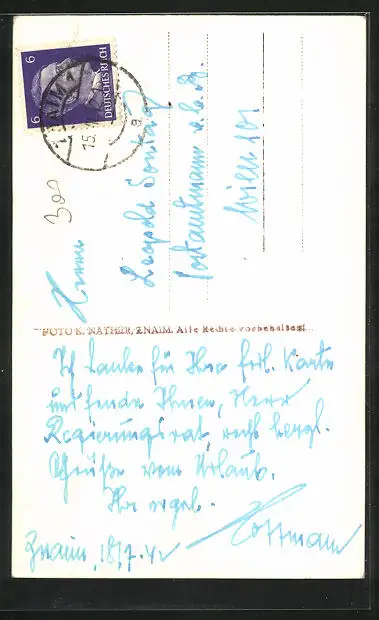 6
6
DEUTSCHES REICH
ZNAIM 1
15.
a
300
Herrn
Leopold Sontag
Postamtmann a. D.
Wien 101
FOTO K. NATHER, ZNAIM. Alle Rechte vorbehalten!
Ich danke für Ihre frdl. Karte
und sende Ihnen, Herr
Regierungsrat, recht herzl.
Grüße vom Urlaub.
Ihr ergeb.
Hoffmann
Znaim, 18/7. 42